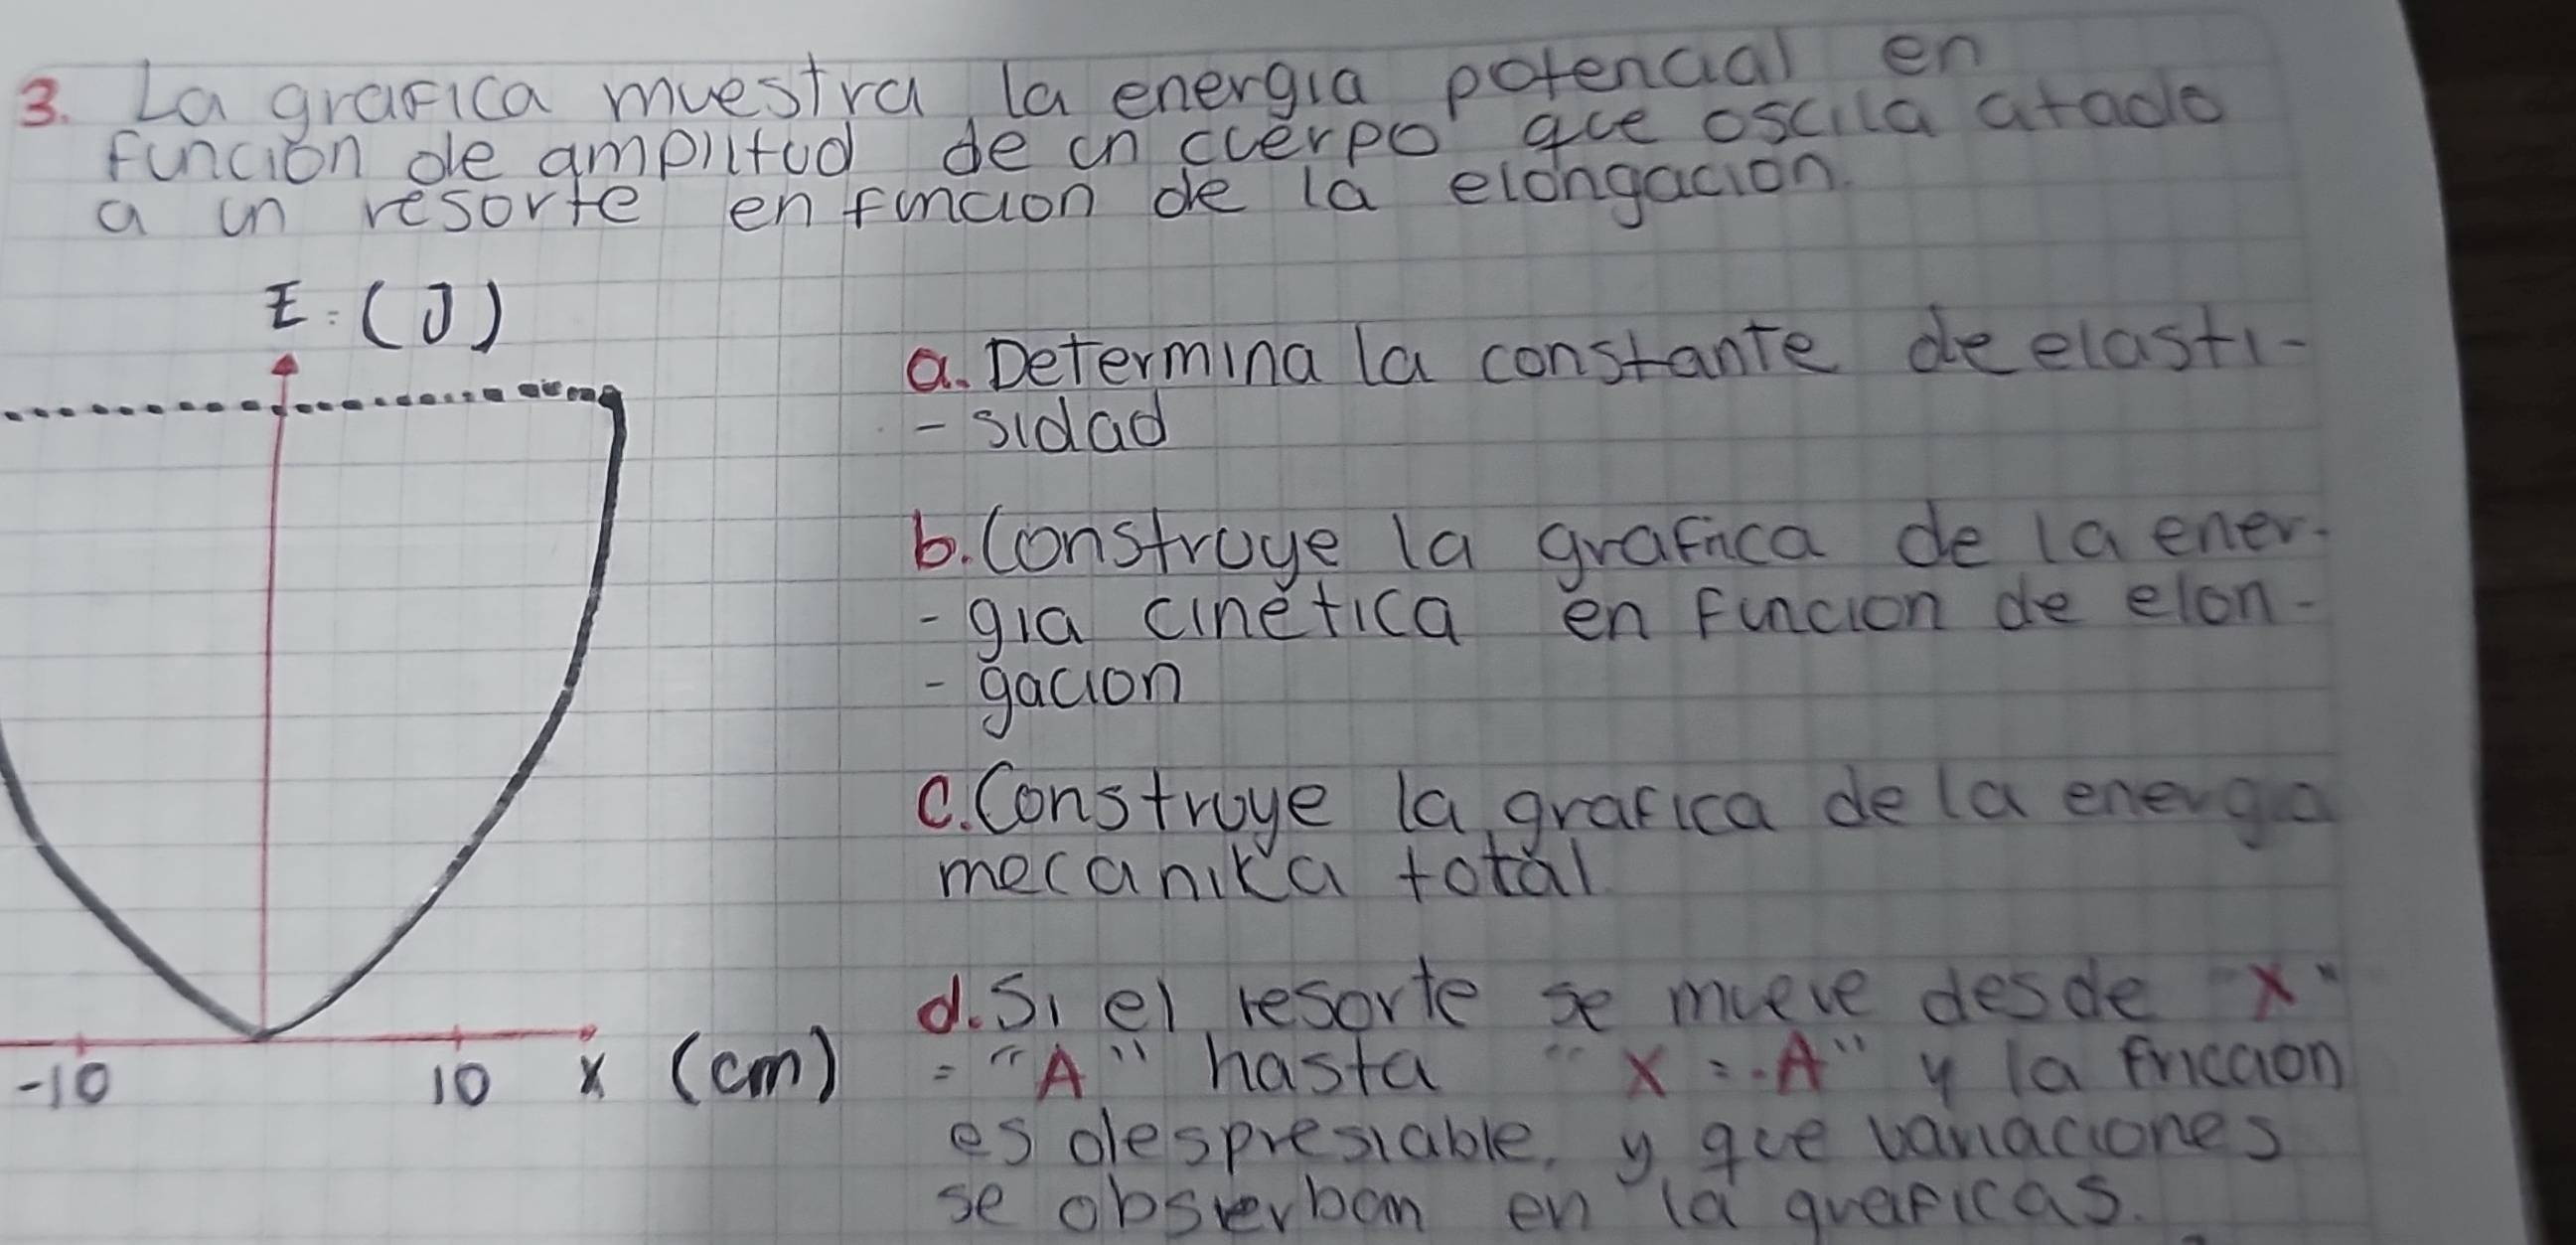 3. La grafica muestra la energia potencial en
función de amplitud de un cuerpo que oscila atado
a un resorte en funcion de la elongacion.
E: (J)
a. Determina la constante de elasti-
- sidad
b. Construye la grafica de la ener-
- gia cinética en funcion de elon-
- gacion
c. Construye la grafica de la energia
mecanika total
-10 10 x (cm)
d. Si el resorte se mueve desde "x"
= "A" hasta "x = -A" y la friccion
es despresiable, y que variaciones
se obsverban en la graficas.